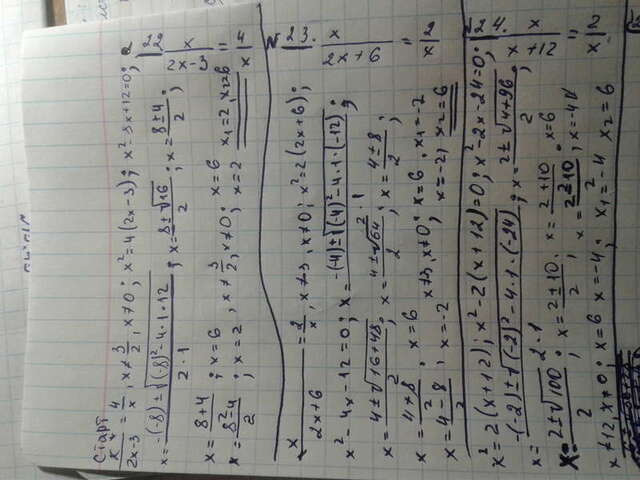 № 22 x / 2x-3 = 4 / x
Старт
x / 2x-3 = 4 / x, x≠ 3/2, x≠0; x²=4(2x-3); x²-8x+12=0;
x= -(-8)±√(-8)²-4·1·12 / 2·1 ; x= 8±√16 / 2 ; x= 8±4 / 2 ;
x= 8+4 / 2 ; x=6
x= 8-4 / 2 ; x=2, x≠ 3/2, x≠0; x=6 x=2 x₁=2, x₂=6
№ 23. x / 2x+6 = 2 / x
x / 2x+6 = 2 / x, x≠-3, x≠0; x²=2(2x+6);
x²-4x-12=0; x= -(-4)±√(-4)²-4·1·(-12) / 2·1 ;
x= 4±√16+48 / 2 ; x= 4±√64 / 2 ; x= 4±8 / 2 ;
x= 4+8 / 2 , x=6
x= 4-8 / 2 , x=-2 x≠3, x≠0; x=6, x₁=-2 x=-2, x₂=6
№ 24. x / x+12 = 2 / x
x²=2(x+12); x²-2(x+12)=0; x²-2x-24=0;
x= -(-2)±√(-2)²-4·1·(-24) / 2·1 ; x= 2±√4+96 / 2
x= 2±√100 / 2 ; x= 2±10 / 2 , x= 2+10 / 2 x=6
x= 2-10 / 2 , x=-4
x≠12, x≠0; x=6 x=-4; x₁=-4 x₂=6